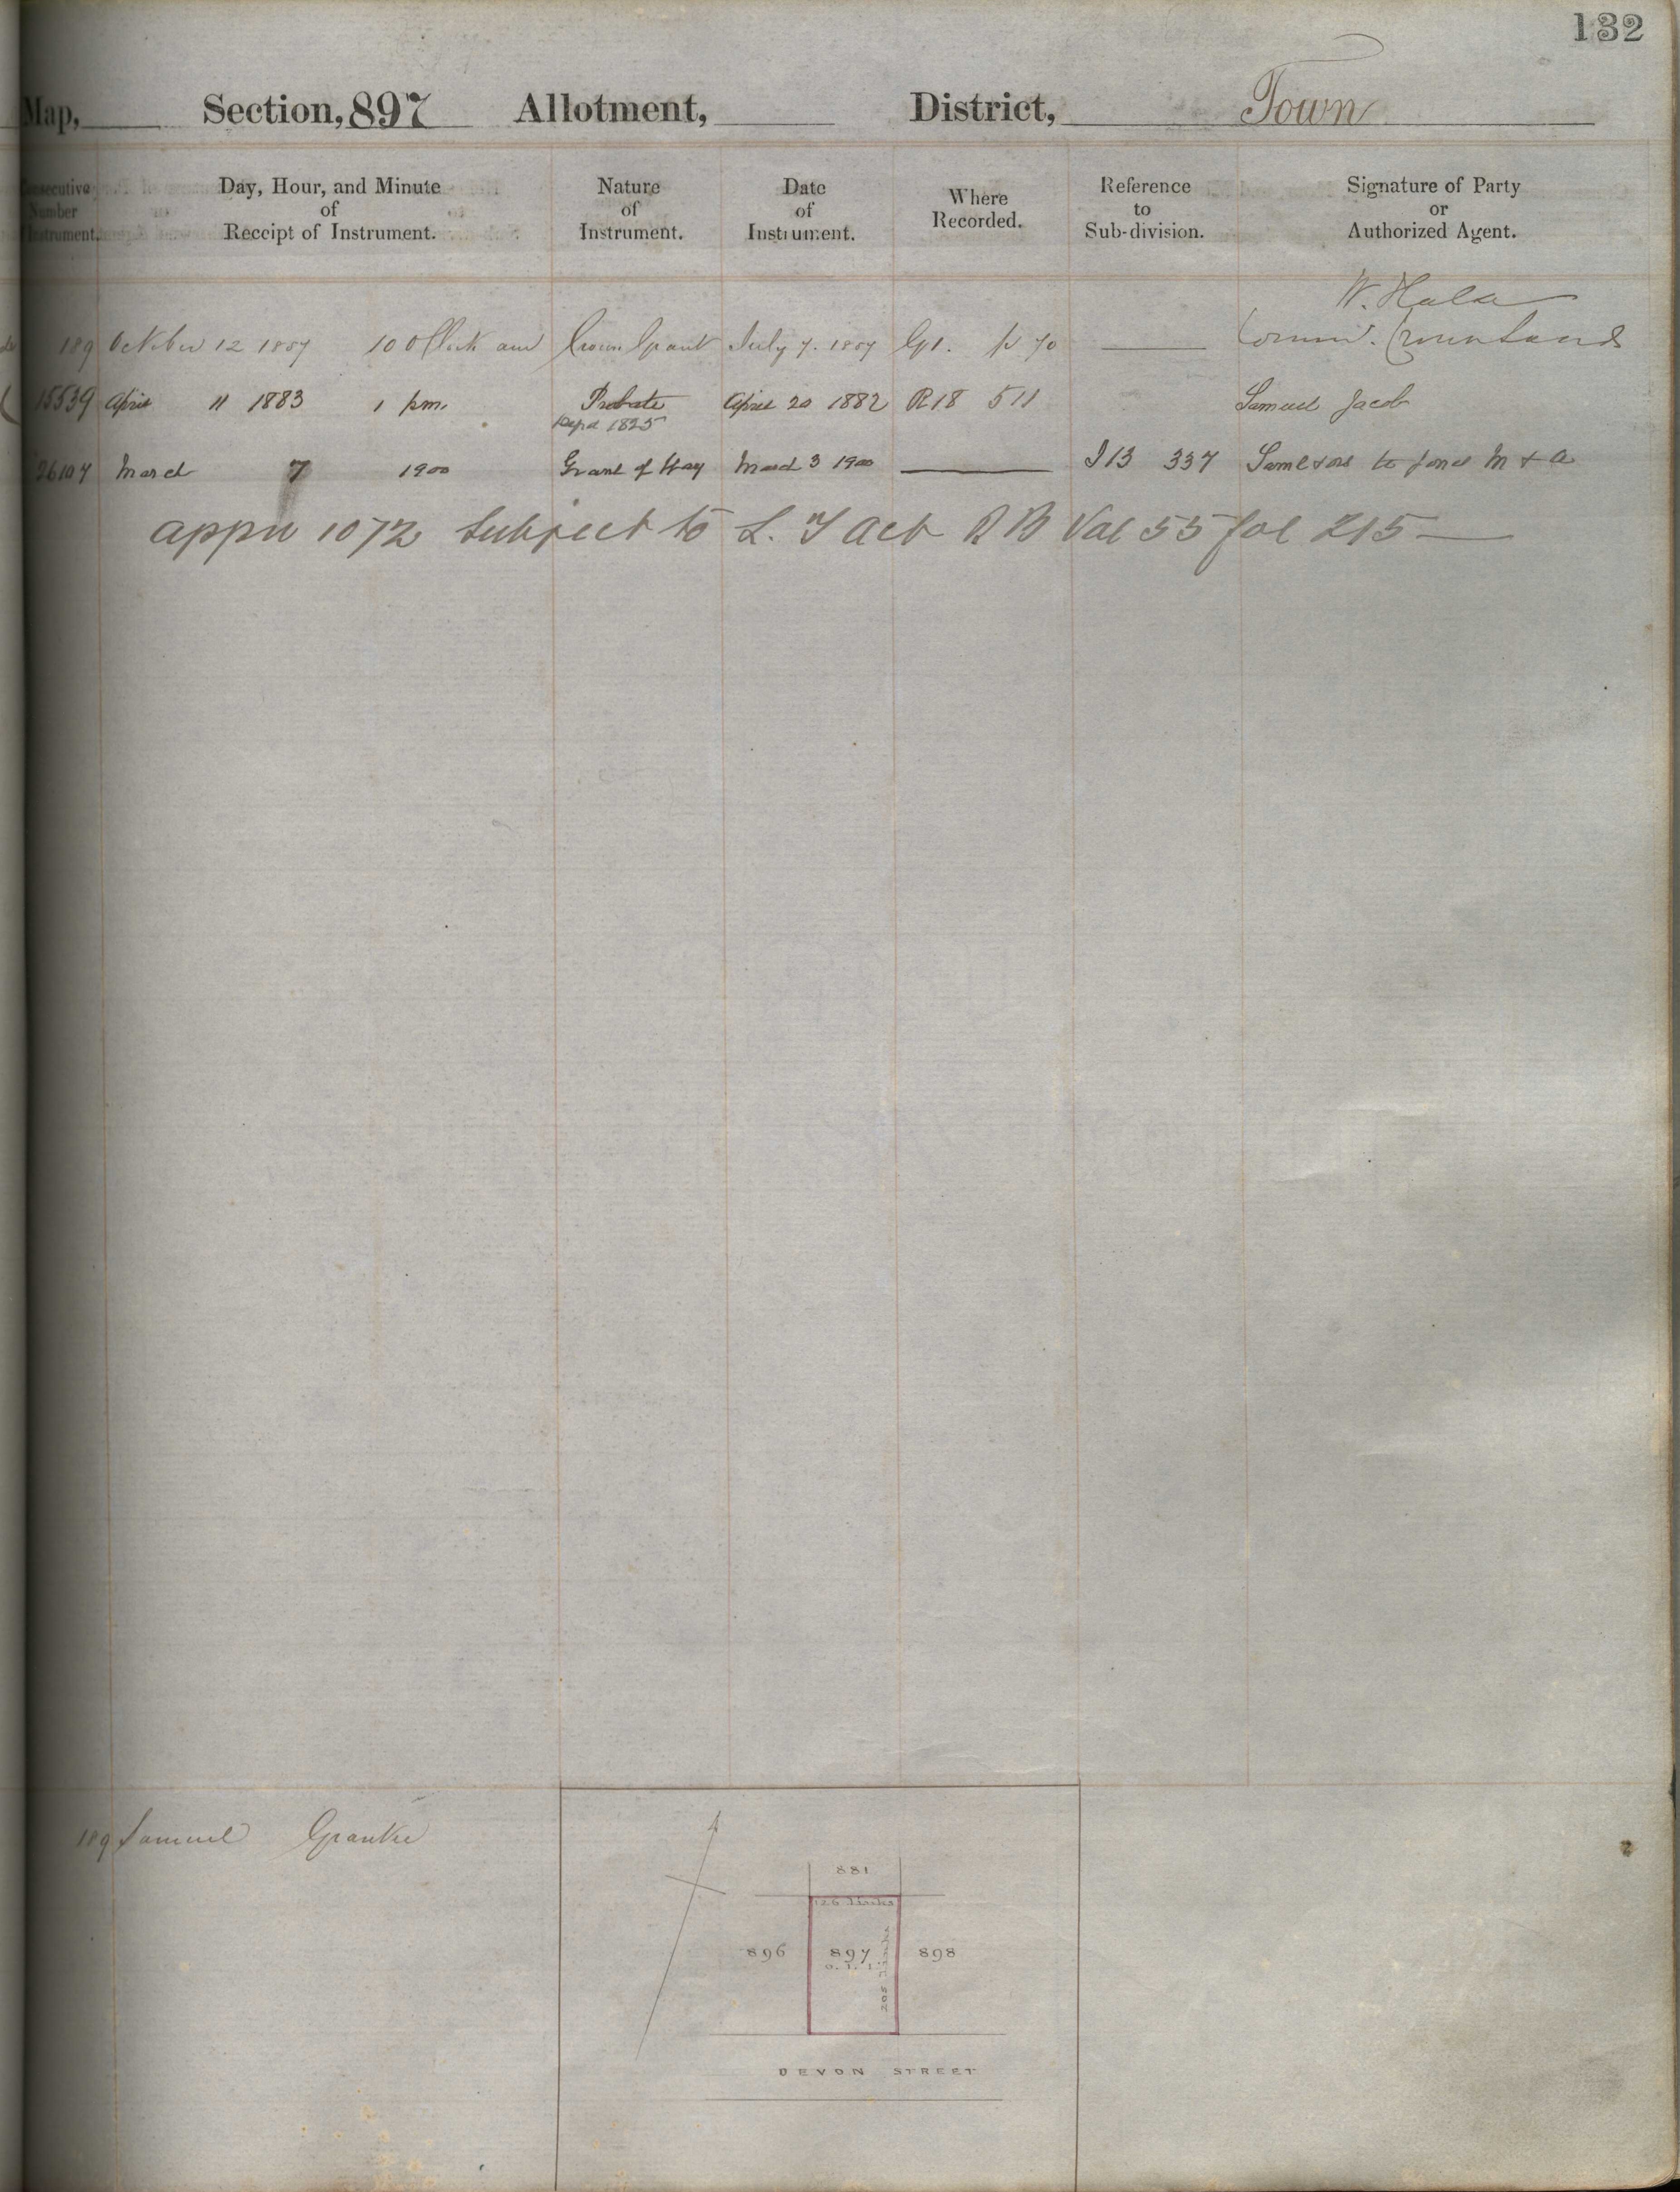 132
Map, Section, 897 Allotment, District, Town
Consecutive Number Instrument.
Day, Hour, and Minute of Receipt of Instrument.
Nature of Instrument.
Date of Instrument.
Where Recorded.
Reference to Sub-division.
Signature of Party or Authorized Agent.
W. Halse
189 October 12 1857 10 O Clock am Crown Grant July 7. 1857 G1. p 70 Comm. Crown Lands
15539 April 11 1883 1 pm. Probate April 20 1882 R18 511 Samuel Jacob
Depd 1825
26107 March 7 1900 Grant of Way March 3 1900 I 13 337 Same & ors to Jones M & a
appn 1072 Subject to L. T Act R B Vol 55 fol 215
189 Samuel
881
126 Links
896 897 898
0. 1. 1
205 Links
DEVON STREET